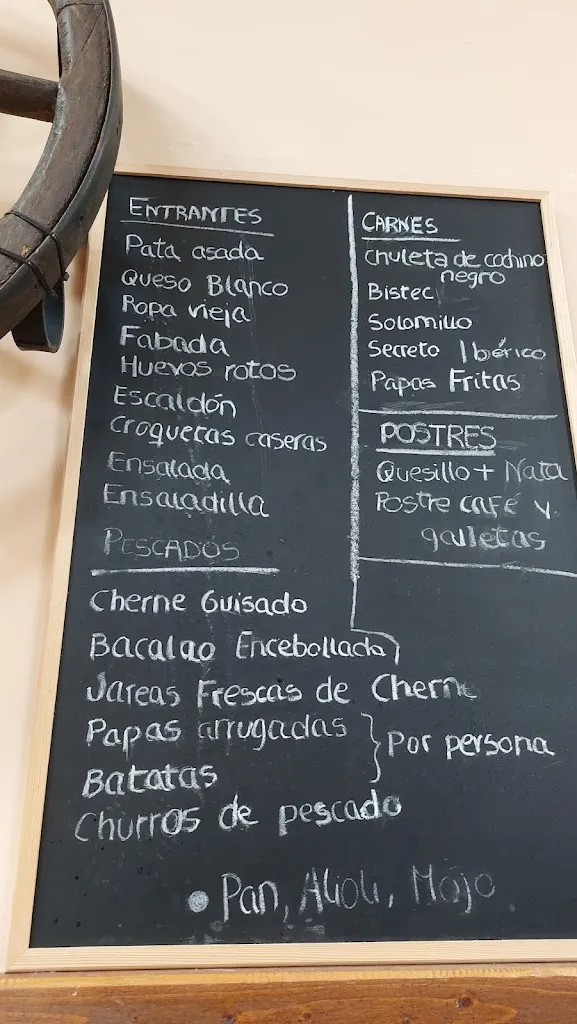 ENTRANTES
Pata asada
Queso Blanco
Ropa vieja
Fabada
Huevos rotos
Escaldón
croquetas caseras
Ensalada
Ensaladilla
PESCADOS
Cherne Guisado
Bacalao Encebollada
Jareas Frescas de Cherne
Papas arrugadas
Batatas
Por persona
Churros de pescado
CARNES
Chuleta de cochino
negro
Bistec
Solomillo
Secreto Ibérico
Papas Fritas
POSTRES
Quesillo + Nata
Postre café y
galletas
• Pan, Alioli, Mojo.